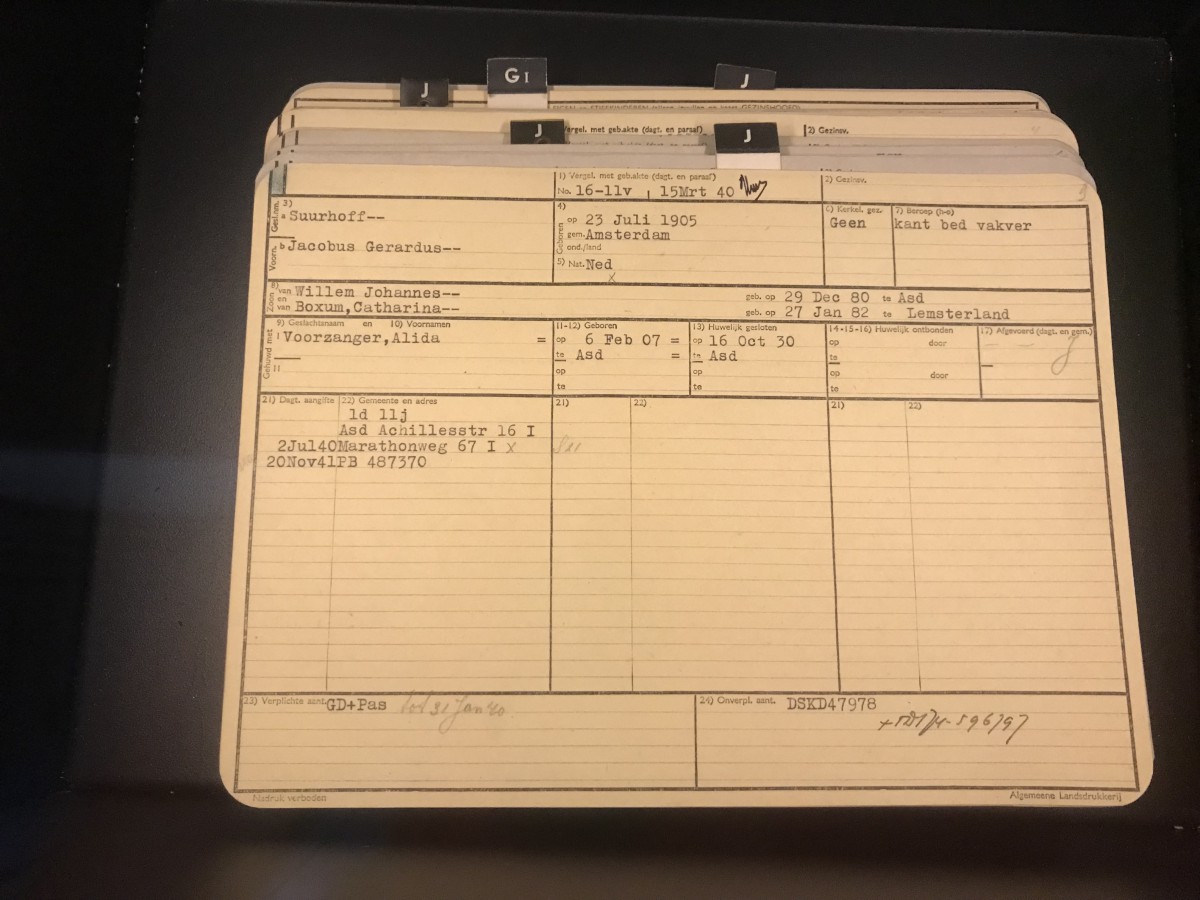 J
G I
J
J
J
Vergel. met geb.akte (dagt. en paraaf)
2) Gezinsv.
1) Vergel. met geb.akte (dagt. en paraaf)
No. 16-11v 15Mrt 40
2) Gezinsv.
Gesl.nm.
3)
a Suurhoff--
Voorn.
b Jacobus Gerardus--
4)
Geboren
op 23 Juli 1905
gem. Amsterdam
ond./land
5) Nat. Ned
x
6) Kerkel. gez.
Geen
7) Beroep (h-o)
kant bed vakver
8)
Zoon
van Willem Johannes-- geb. op 29 Dec 80 te Asd
en
van Boxum,Catharina-- geb. op 27 Jan 82 te Lemsterland
Gehuwd met
9) Geslachtsnaam en 10) Voornamen
I Voorzanger,Alida =
II
11-12) Geboren
op 6 Feb 07 =
te Asd =
op
te
13) Huwelijk gesloten
op 16 Oct 30
te Asd
op
te
14-15-16) Huwelijk ontbonden
op door
te
op door
te
17) Afgevoerd (dagt. en gem.)
21) Dagt. aangifte 22) Gemeente en adres
1d 11j
Asd Achillesstr 16 I
2Jul40 Marathonweg 67 I x
20Nov41 PB 487370
21) 22)
21) 22)
23) Verplichte aant. GD+Pas tot 31 Jan 40
24) Onverpl. aant. DSKD47978
Nadruk verboden
Algemeene Landsdrukkerij